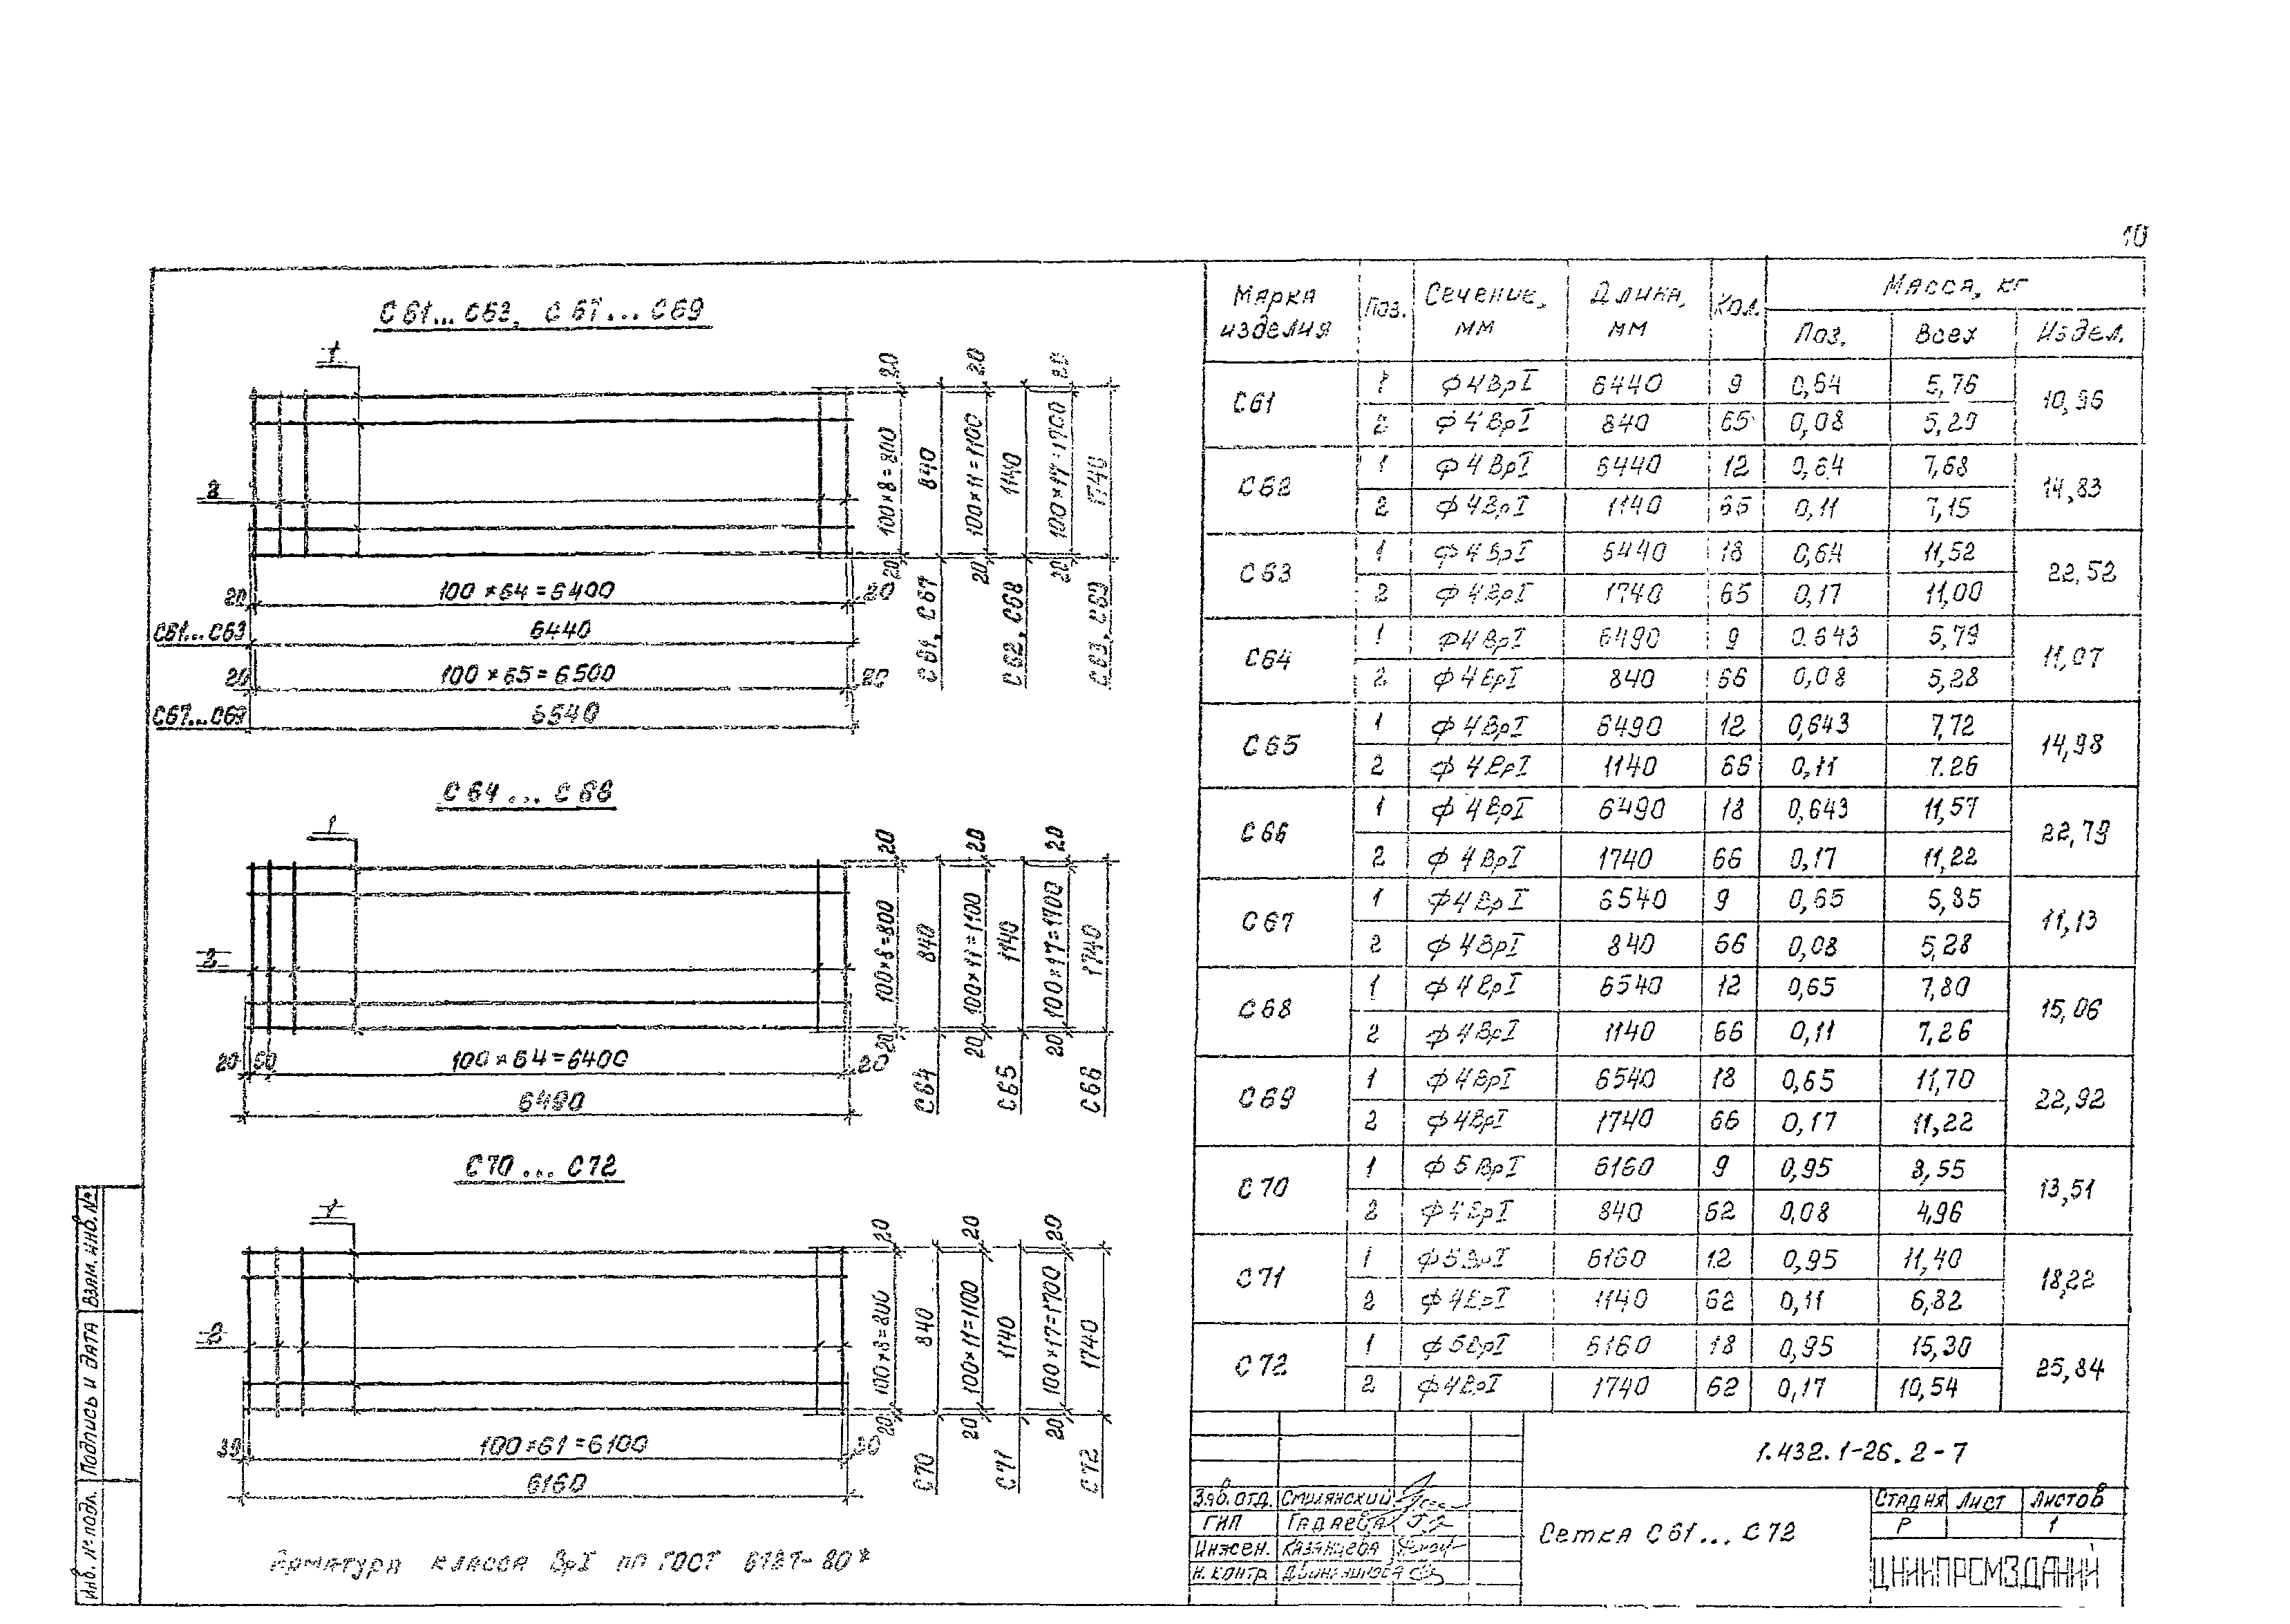 10
С61...С63, С67...С69
1
2
20 100×64=6400 20
С61...С63 6440
20 100×65=6500 20
С67...С69 6540
20 100×8=800 20
840
С61, С67
20 100×11=1100 20
1140
С62, С68
20 100×17=1700 20
1740
С63, С69
С64...С66
1
2
20 50 100×64=6400 20
6490
20 100×8=800 20
840
С64
20 100×11=1100 20
1140
С65
20 100×17=1700 20
1740
С66
С70...С72
1
2
30 100×61=6100 30
6160
20 100×8=800 20
840
С70
20 100×11=1100 20
1140
С71
20 100×17=1700 20
1740
С72
Арматура класса ВрI по ГОСТ 6727-80*
Марка изделия Поз. Сечение, мм Длина, мм Кол. Масса, кг
Поз. Всех Издел.
С61 1 ф4ВрI 6440 9 0,64 5,76 10,96
2 ф4ВрI 840 65 0,08 5,20
С62 1 ф4ВрI 6440 12 0,64 7,68 14,83
2 ф4ВрI 1140 65 0,11 7,15
С63 1 ф4ВрI 6440 18 0,64 11,52 22,52
2 ф4ВрI 1740 65 0,17 11,00
С64 1 ф4ВрI 6490 9 0.643 5,79 11,07
2 ф4ВрI 840 66 0,08 5,28
С65 1 ф4ВрI 6490 12 0,643 7,72 14,98
2 ф4ВрI 1140 66 0,11 7.26
С66 1 ф4ВрI 6490 18 0,643 11,57 22,79
2 ф4ВрI 1740 66 0,17 11,22
С67 1 ф4ВрI 6540 9 0,65 5,85 11,13
2 ф4ВрI 840 66 0,08 5,28
С68 1 ф4ВрI 6540 12 0,65 7,80 15,06
2 ф4ВрI 1140 66 0,11 7,26
С69 1 ф4ВрI 6540 18 0,65 11,70 22,92
2 ф4ВрI 1740 66 0,17 11,22
С70 1 ф5ВрI 6160 9 0,95 8,55 13,51
2 ф4ВрI 840 62 0,08 4,96
С71 1 ф5ВрI 6160 12 0,95 11,40 18,22
2 ф4ВрI 1140 62 0,11 6,82
С72 1 ф5ВрI 6160 18 0,95 15,30 25,84
2 ф4ВрI 1740 62 0,17 10,54
1.432.1-26.2-7
Зав. отд. Смилянский
ГИП Гадаева
Инжен. Казанцева
Н. контр.
Сетка С61...С72
Стадия Лист Листов
Р 1
ЦНИИПРОМЗДАНИЙ
Взам. инв. №
Подпись и дата
Инв. № подл.